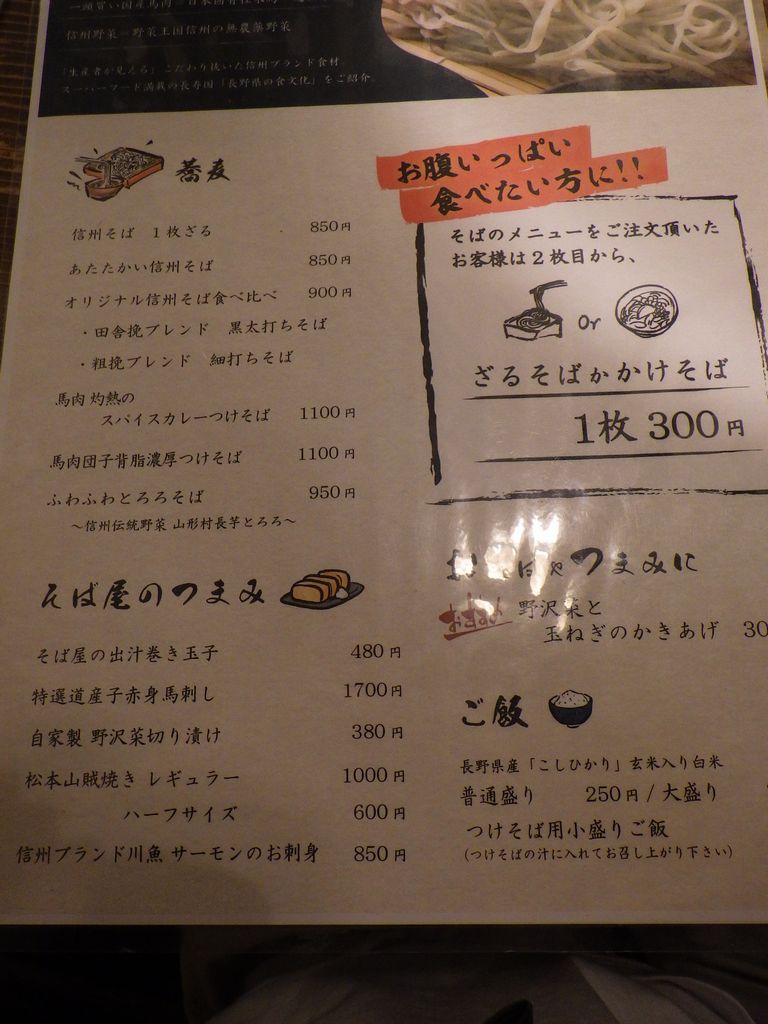 信州野菜＝野菜王国信州の無農薬野菜
「生産者が見える」こだわり抜いた信州ブランド食材
スーパーフード満載の長寿国「長野県の食文化」をご紹介。
蕎麦
信州そば 1枚ざる 850円
あたたかい信州そば 850円
オリジナル信州そば食べ比べ 900円
・田舎挽ブレンド 黒太打ちそば
・粗挽ブレンド 細打ちそば
馬肉 灼熱の
スパイスカレーつけそば 1100円
馬肉団子背脂濃厚つけそば 1100円
ふわふわとろろそば 950円
～信州伝統野菜 山形村長芋とろろ～
そば屋のつまみ
そば屋の出汁巻き玉子 480円
特選道産子赤身馬刺し 1700円
自家製 野沢菜切り漬け 380円
松本山賊焼き レギュラー 1000円
ハーフサイズ 600円
信州ブランド川魚 サーモンのお刺身 850円
お腹いっぱい
食べたい方に!!
そばのメニューをご注文頂いた
お客様は2枚目から、
Or
ざるそばかかけそば
1枚 300円
つまみに
おすすめ 野沢菜と
玉ねぎのかきあげ 30
ご飯
長野県産「こしひかり」玄米入り白米
普通盛り 250円 / 大盛り
つけそば用小盛りご飯
(つけそばの汁に入れてお召し上がり下さい)